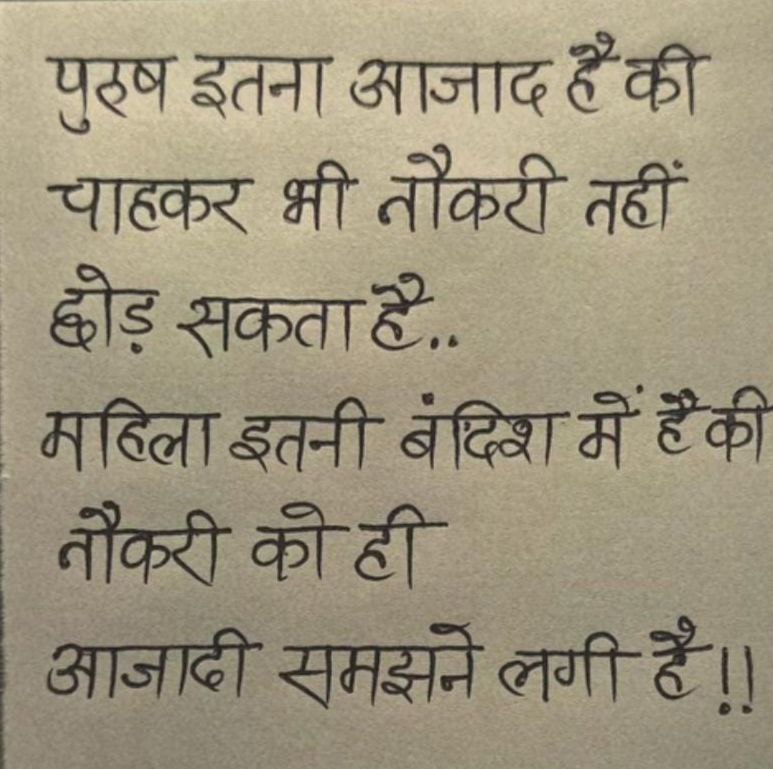 पुरुष इतना आजाद है की
चाहकर भी नौकरी नहीं
छोड़ सकता है..
महिला इतनी बंदिश में है की
नौकरी को ही
आजादी समझने लगी है!!